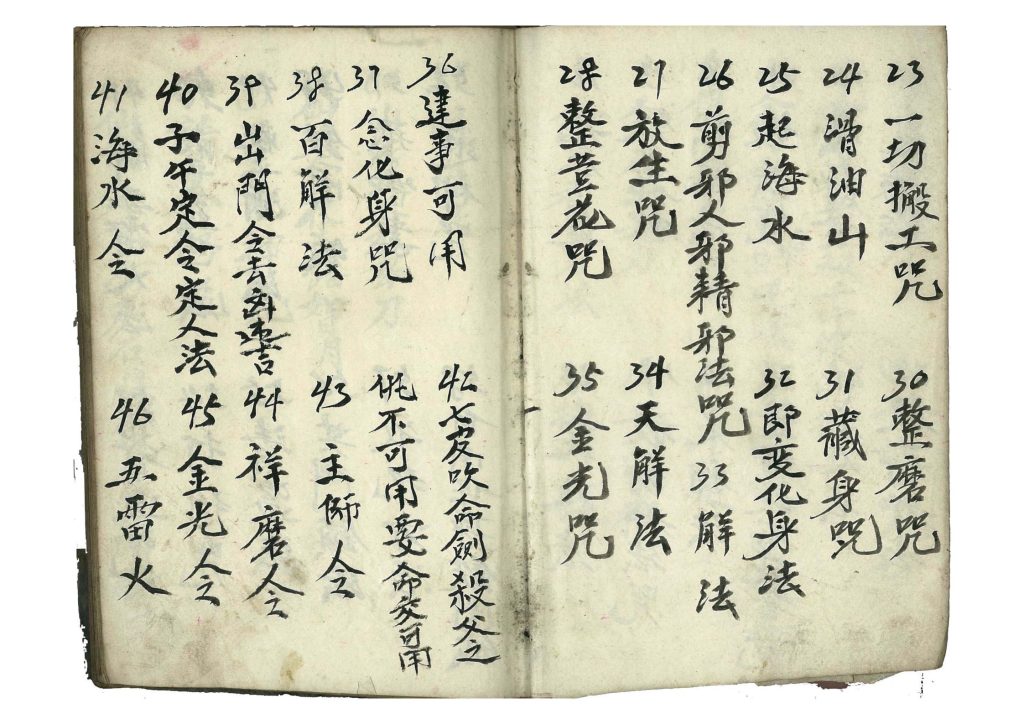 23 一切搬工咒
24 滑油山
25 起海水
26 剪邪人邪精邪法咒
27 放生咒
28 整荳花咒
30 整磨咒
31 藏身咒
32 即变化身法
33 解法
34 天解法
35 金光咒
36 建事可用
37 念化身咒
38 百解法
39 出門令去
40 子午定令定人法
41 海水令
42 七 吹命劍殺父之
不可用要命交可用
43 主师令
44 祥磨令
45 金光令
46 五雷火